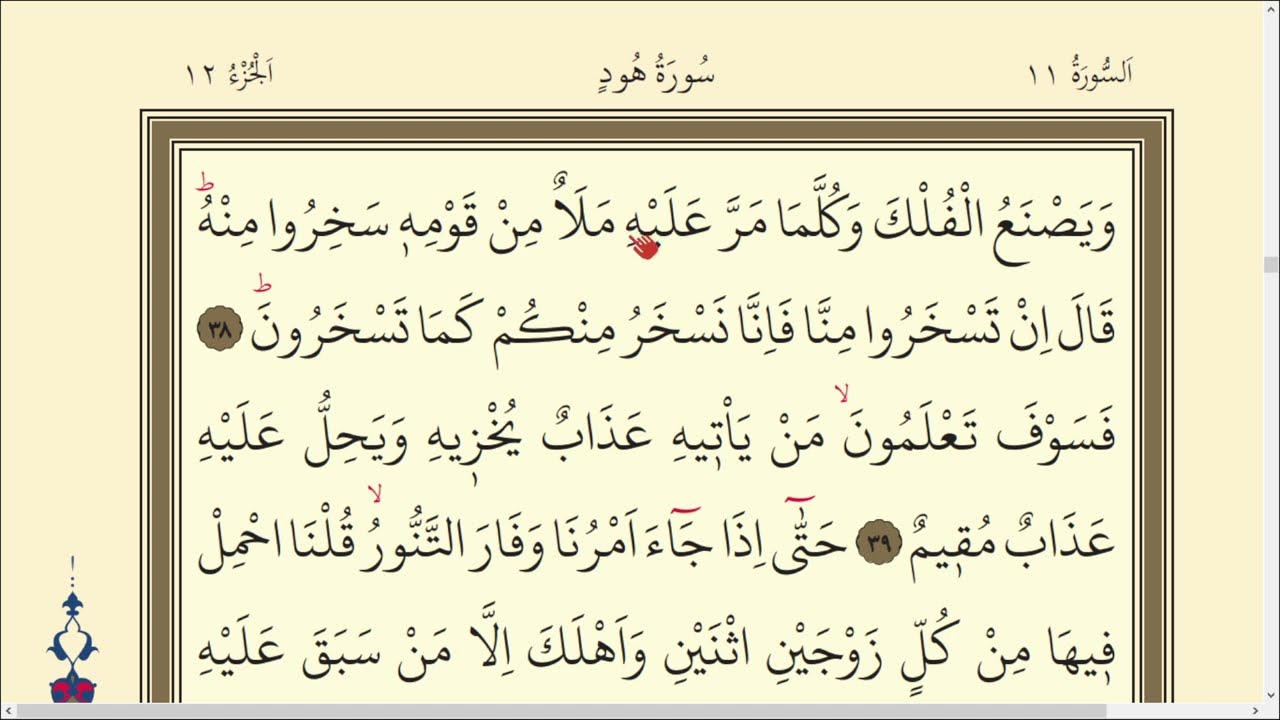 اَلسُّورَةُ ١١ سُورَةُ هُودٍ اَلْجُزْءُ ١٢
وَيَصْنَعُ الْفُلْكَ وَكُلَّمَا مَرَّ عَلَيْهِ مَلَاٌ مِنْ قَوْمِه۪ سَخِرُوا مِنْهُۜ
قَالَ اِنْ تَسْخَرُوا مِنَّا فَاِنَّا نَسْخَرُ مِنْكُمْ كَمَا تَسْخَرُونَۜ ٣٨
فَسَوْفَ تَعْلَمُونَۙ مَنْ يَاْت۪يهِ عَذَابٌ يُخْز۪يهِ وَيَحِلُّ عَلَيْهِ
عَذَابٌ مُق۪يمٌ ٣٩ حَتّٰٓى اِذَا جَٓاءَ اَمْرُنَا وَفَارَ التَّنُّورُۙ قُلْنَا احْمِلْ
ف۪يهَا مِنْ كُلٍّ زَوْجَيْنِ اثْنَيْنِ وَاَهْلَكَ اِلَّا مَنْ سَبَقَ عَلَيْهِ